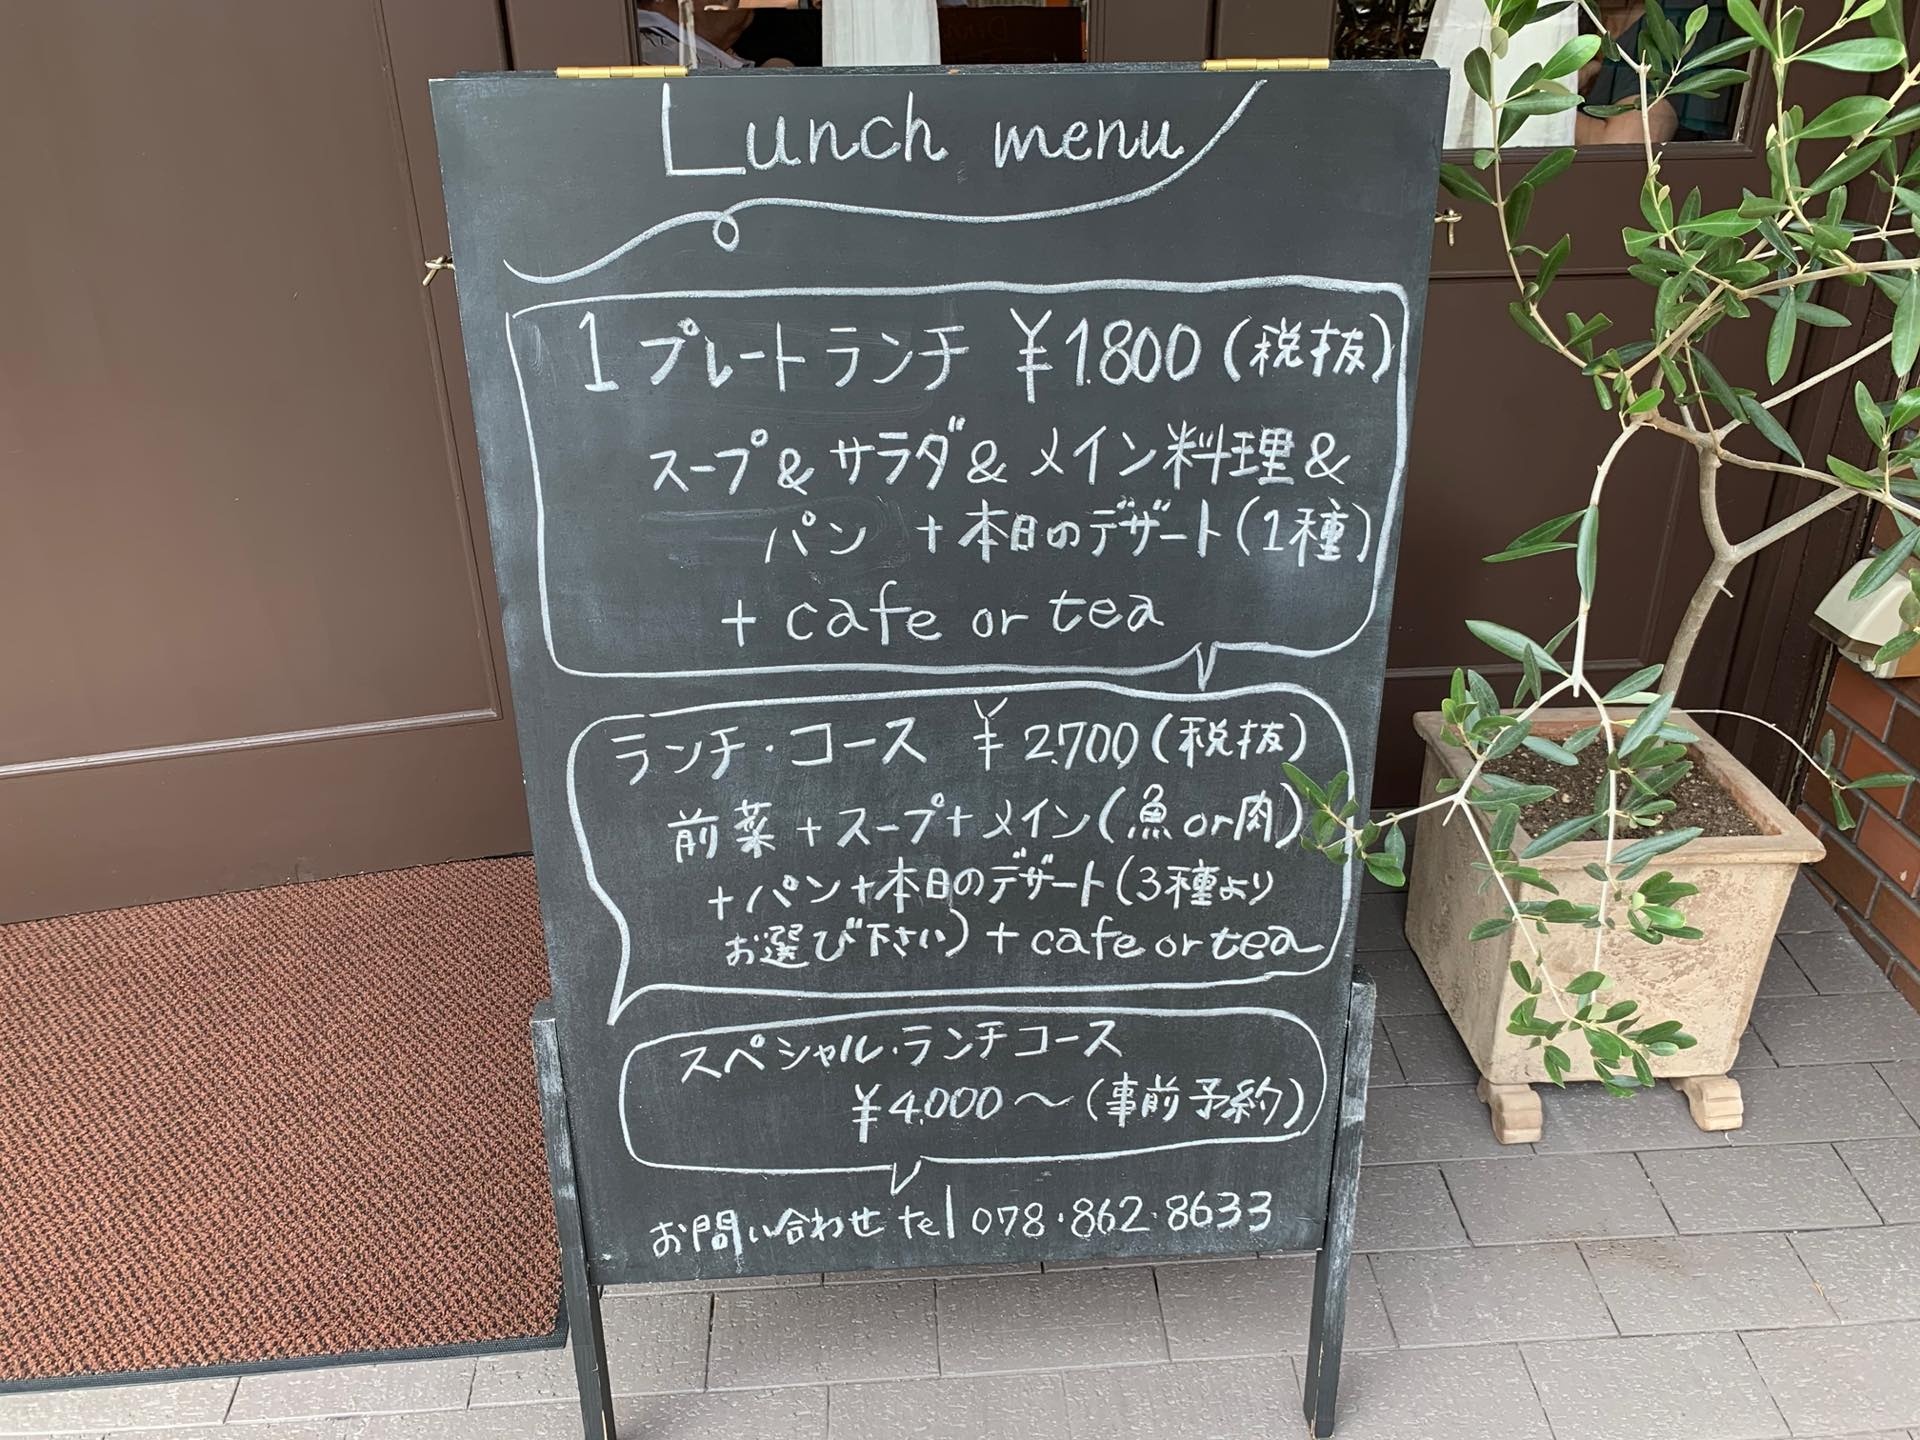 Lunch menu
1プレートランチ ¥1.800(税抜)
スープ&サラダ&メイン料理&
パン +本日のデザート(1種)
+ cafe or tea
ランチ・コース ¥2.700(税抜)
前菜+スープ+メイン(魚or肉)
+パン+本日のデザート(3種より
お選び下さい)+ cafe or tea
スペシャル・ランチコース
¥4.000〜(事前予約)
お問い合わせ tel 078・862・8633